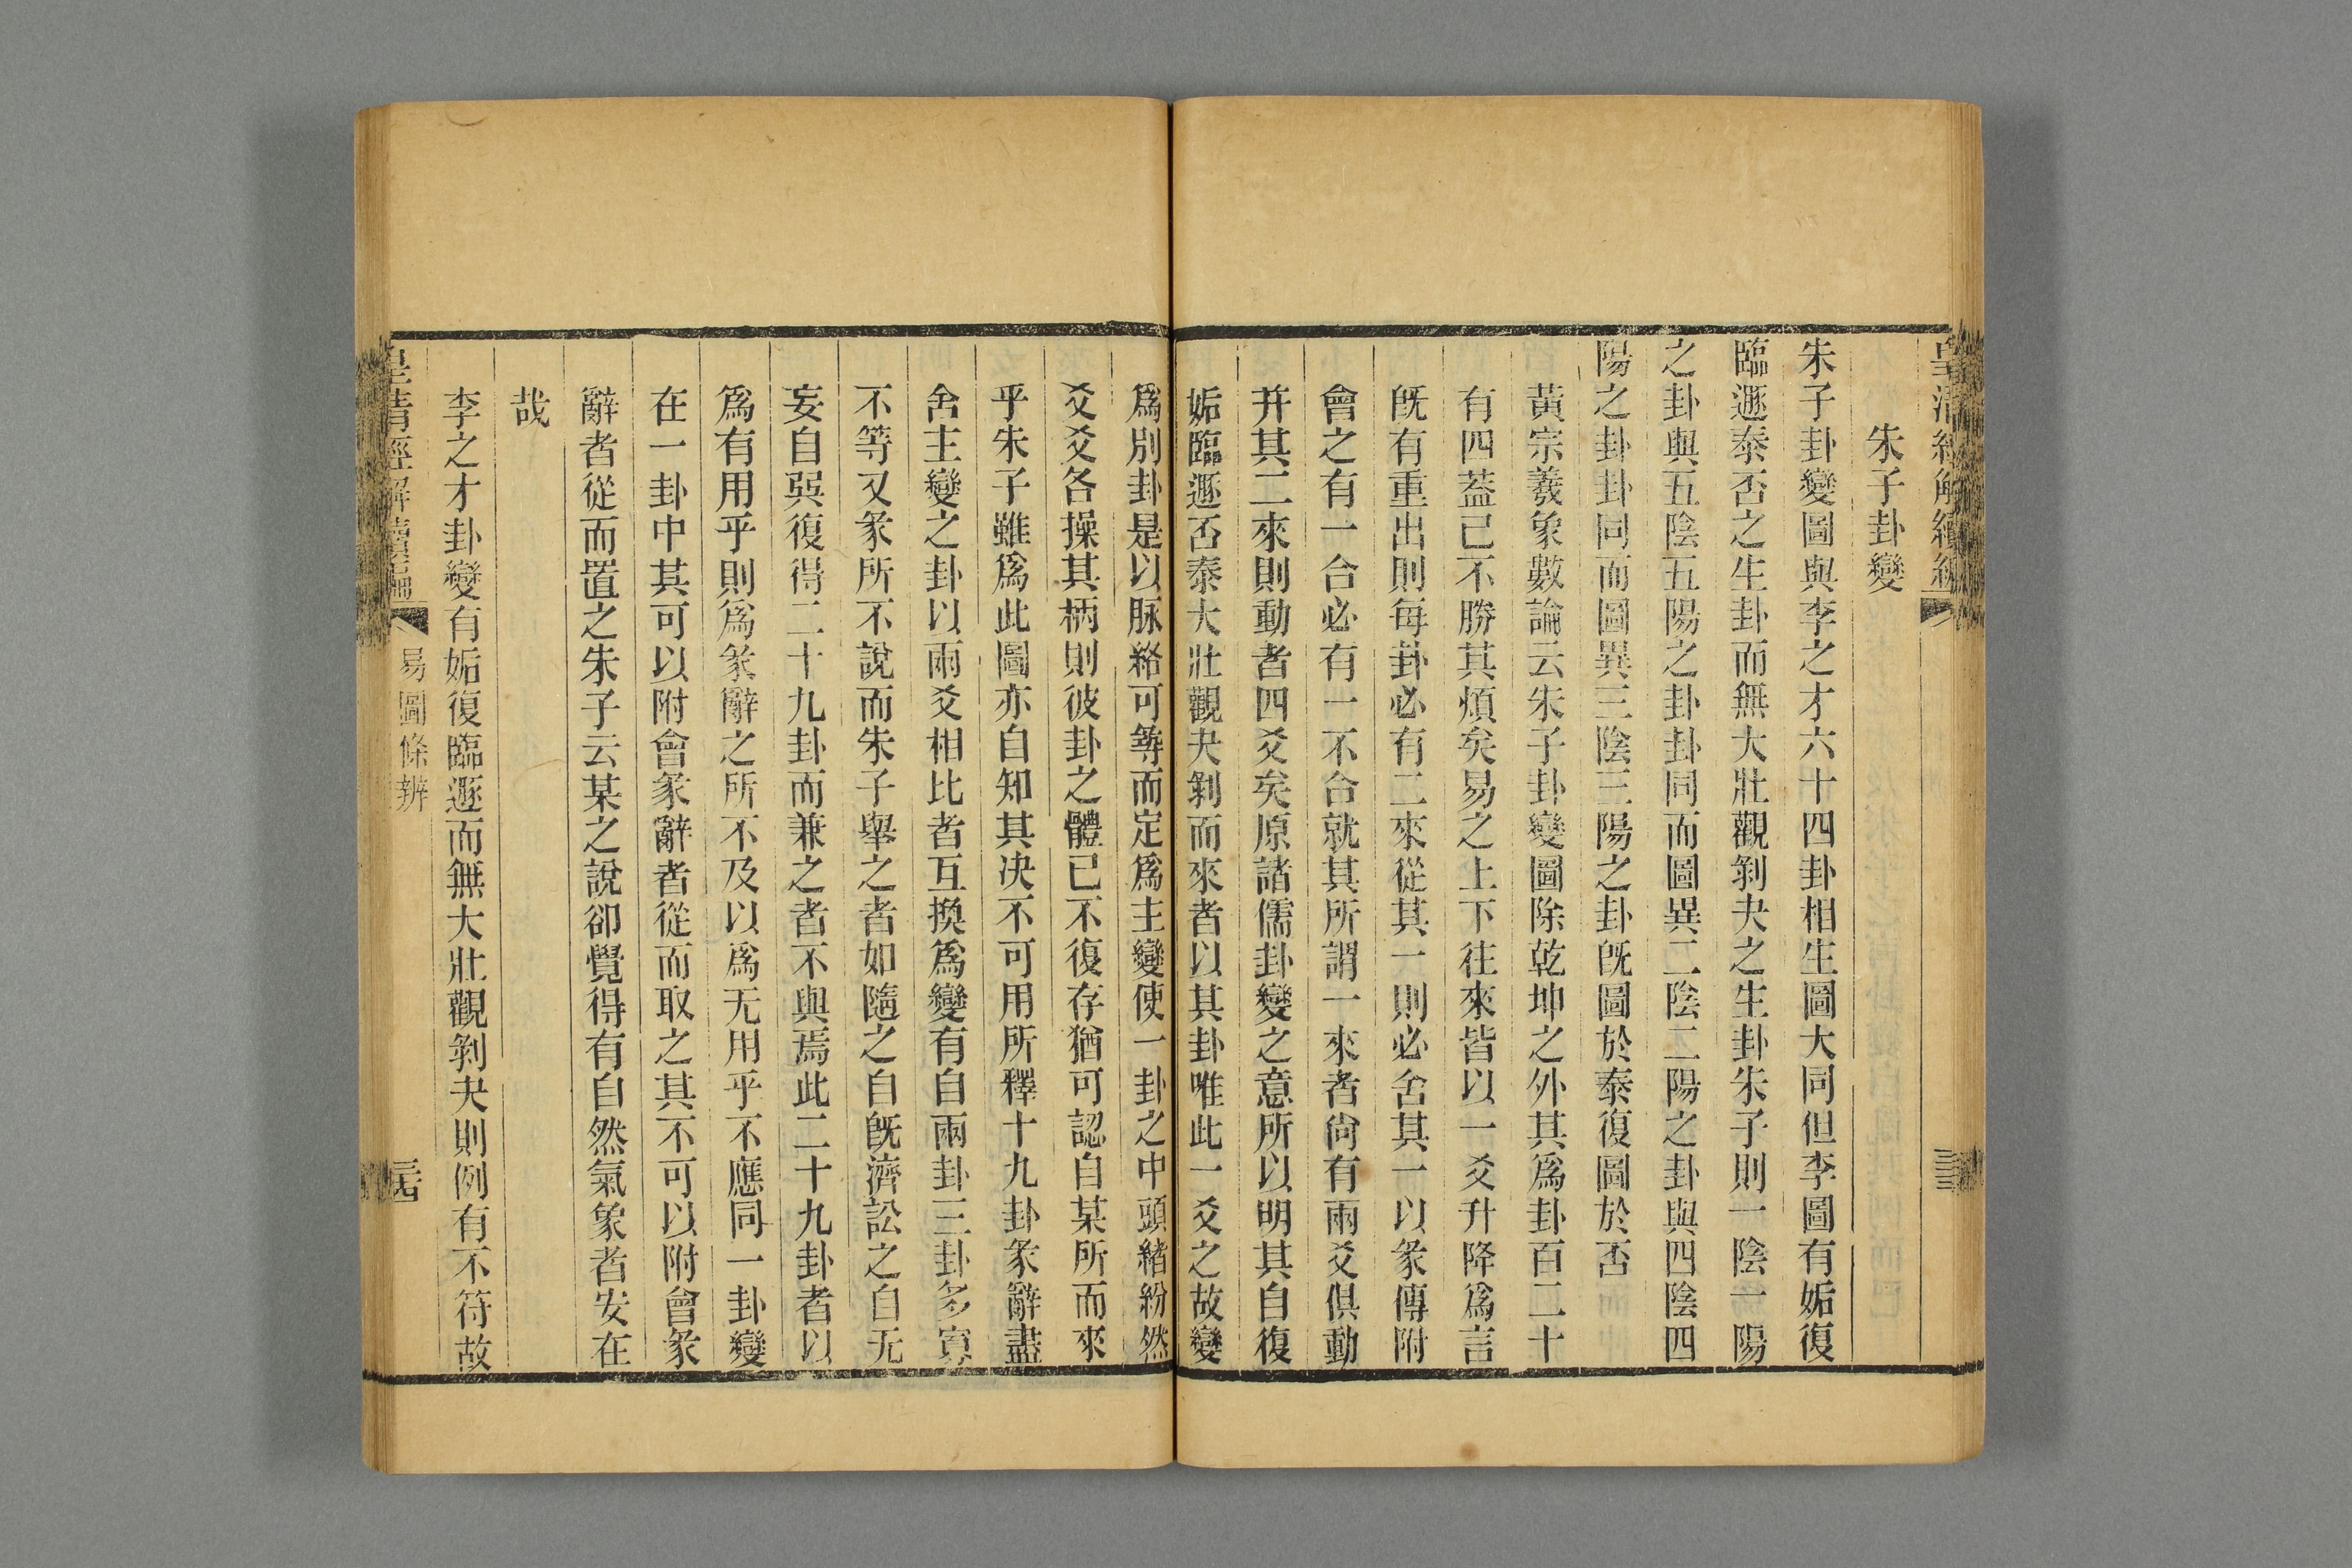 朱子卦變
朱子卦變圖與李之才六十四卦相生圖大同但李圖有姤復
臨遯泰否之生卦而無大壯觀剝夬之生卦朱子則一陰一陽
之卦與五陰五陽之卦卦同而圖異二陰二陽之卦與四陰四
陽之卦卦同而圖異三陰三陽之卦旣圖於泰復圖於否
黃宗羲象數論云朱子卦變圖除乾坤之外其爲卦百二十
有四蓋已不勝其煩矣易之上下往來皆以一爻升降爲言
旣有重出則每卦必有二來從其一則必舍其一以彖傳附
會之有一合必有一不合就其所謂一來者尙有兩爻俱動
幷其二來則動者四爻矣原諸儒卦變之意所以明其自復
姤臨遯否泰大壯觀夬剝而來者以其卦唯此一爻之故變
爲別卦是以脈絡可尋而定爲主變使一卦之中頭緖紛然
爻爻各操其柄則彼卦之體已不復存猶可認自某所而來
乎朱子雖爲此圖亦自知其决不可用所釋十九卦彖辭盡
舍主變之卦以兩爻相比者互換爲變有自兩卦三卦多寡
不等又彖所不說而朱子舉之者如隨之自旣濟訟之自无
妄自巽復得二十九卦而兼之者不與焉此二十九卦者以
爲有用乎則爲彖辭之所不及以爲无用乎不應同一卦變
在一卦中其可以附會彖辭者從而取之其不可以附會彖
辭者從而置之朱子云某之說卻覺得有自然氣象者安在
哉
李之才卦變有姤復臨遯而無大壯觀剝夬則例有不符故
皇清經解續編
易圖條辨